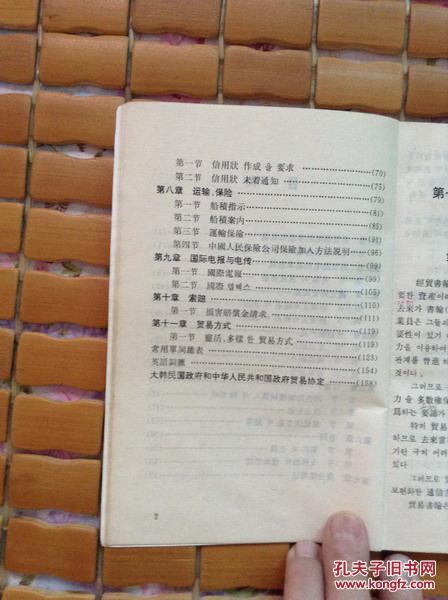 第一节 信用狀 作成 을 要求 ……(70)
第二节 信用狀 未着通知 ……(75)
第八章 运输、保险 ……(79)
第一节 船積指示 ……(81)
第二节 船積案内 ……(85)
第三节 運輸保険 ……(91)
第四节 中國人民保險公司保險加入方法説明 ……(94)
第九章 国际电报与电传 ……(99)
第一节 國際電報 ……(99)
第二节 國際 텔렉스 ……(105)
第十章 索赔 ……(110)
第一节 損害賠償金請求 ……(111)
第十一章 贸易方式 ……(119)
第一节 靈活、多樣 한 貿易方式 ……(119)
常用單词總表 ……(123)
英語詞匯 ……(153)
大韩民国政府和中华人民共和国政府贸易协定 ……(158)
2
第一
經貿書翰
要한 資産이
去來가 書翰
業員은 그들의
要性이 있기
力을 이용하여
관계를 普遍
것이다.
그러므로
力을 多數確保
爲하는 要諦가
特히 貿易
하므로 去來
기란 극히 어려
있다
그러므로
보편화한 通信方
貿易書翰은
孔夫子旧书网
www.kongfz.com